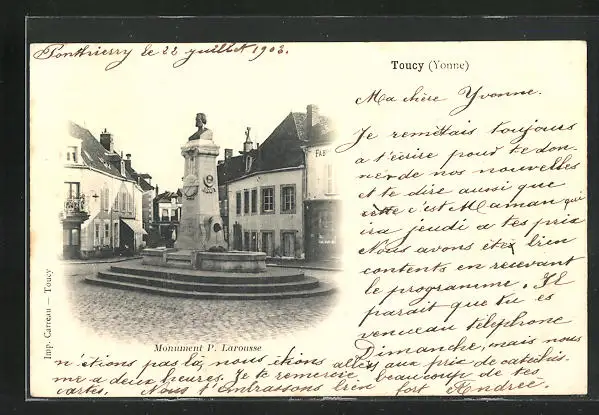 Ponthierry le 22 juillet 1903.
Toucy (Yonne)
Ma chère Yvonne.
Je remettais toujours
a t'écrire pour te don-
ner de nos nouvelles
et te dire aussi que
cette c'est Maman qui
ira jeudi a tes prix
Nous avons étés bien
contents en recevant
le programme. Il
parait que tu es
venceau telephone
Dimanche, mais nous
n'étions pas là, nous étions allés aux prix de catéchis-
me a deux heures. Je te remercie beaucoup de tes
cartes. Nous t'embrassons bien fort Andrée.
Monument P. Larousse
Imp. Carreau — Toucy
FAB